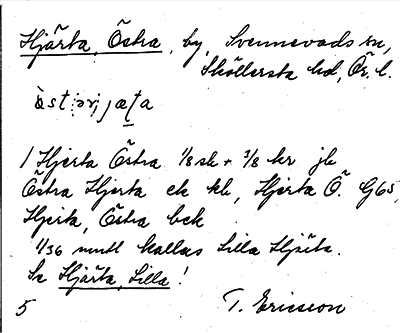 Hjärta, Östra, by, Svennevads sn,
Sköllersta hd, Ör. l.
1 Hjerta Östra 1/8 sk + 3/8 kr jb
Östra Hjerta ek kb, Hjerta Ö. G65,
Hjerta, Östra bek
1/36 mntl kallas Lilla Hjärta.
Se Hjärta, Lilla!
5 T. Ericsson